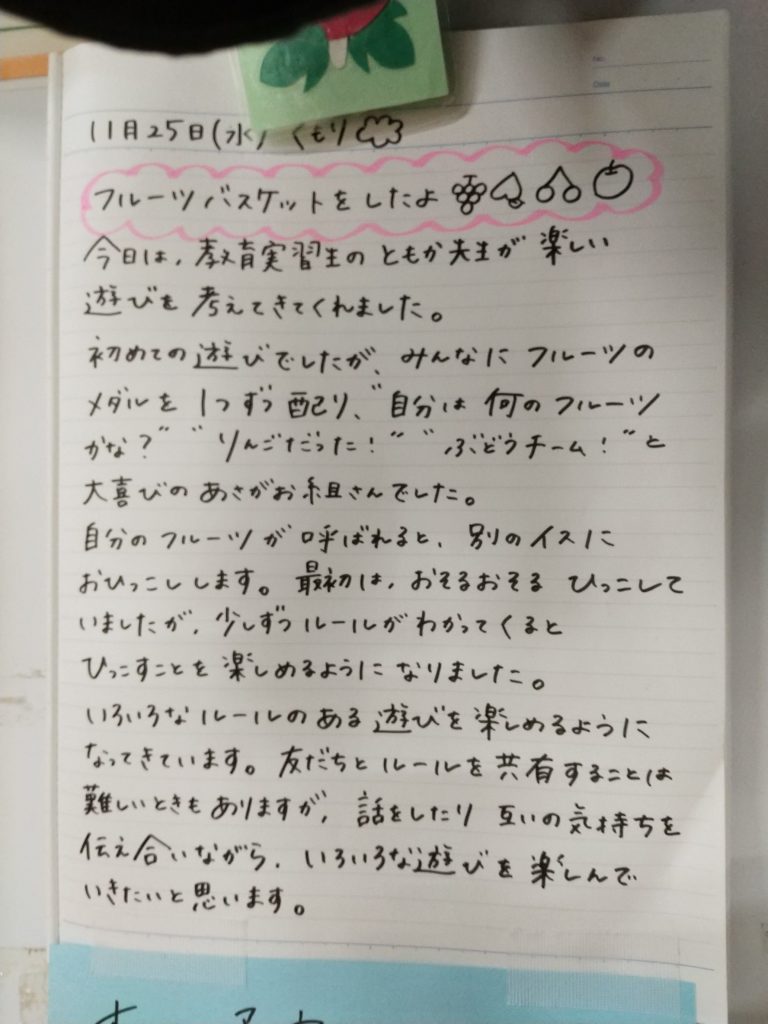 11月25日(水) くもり
フルーツバスケットをしたよ
今日は、教育実習生の ともか先生が 楽しい
遊びを 考えてきてくれました。
初めての 遊びでしたが、みんなに フルーツの
メダルを 1つずつ 配り、"自分は 何の フルーツ
かな?" "りんごだった!" "ぶどうチーム!"と
大喜びの あさがお組さんでした。
自分の フルーツが 呼ばれると、別のイスに
おひっこしします。最初は、おそるおそる ひっこして
いましたが、少しずつ ルールが わかってくると
ひっこすことを 楽しめるように なりました。
いろいろな ルールの ある 遊びを 楽しめるように
なってきています。友だちと ルールを 共有することは
難しいときも ありますが、話をしたり 互いの 気持ちを
伝え合いながら、いろいろな遊びを 楽しんで
いきたいと 思います。
No.
Date